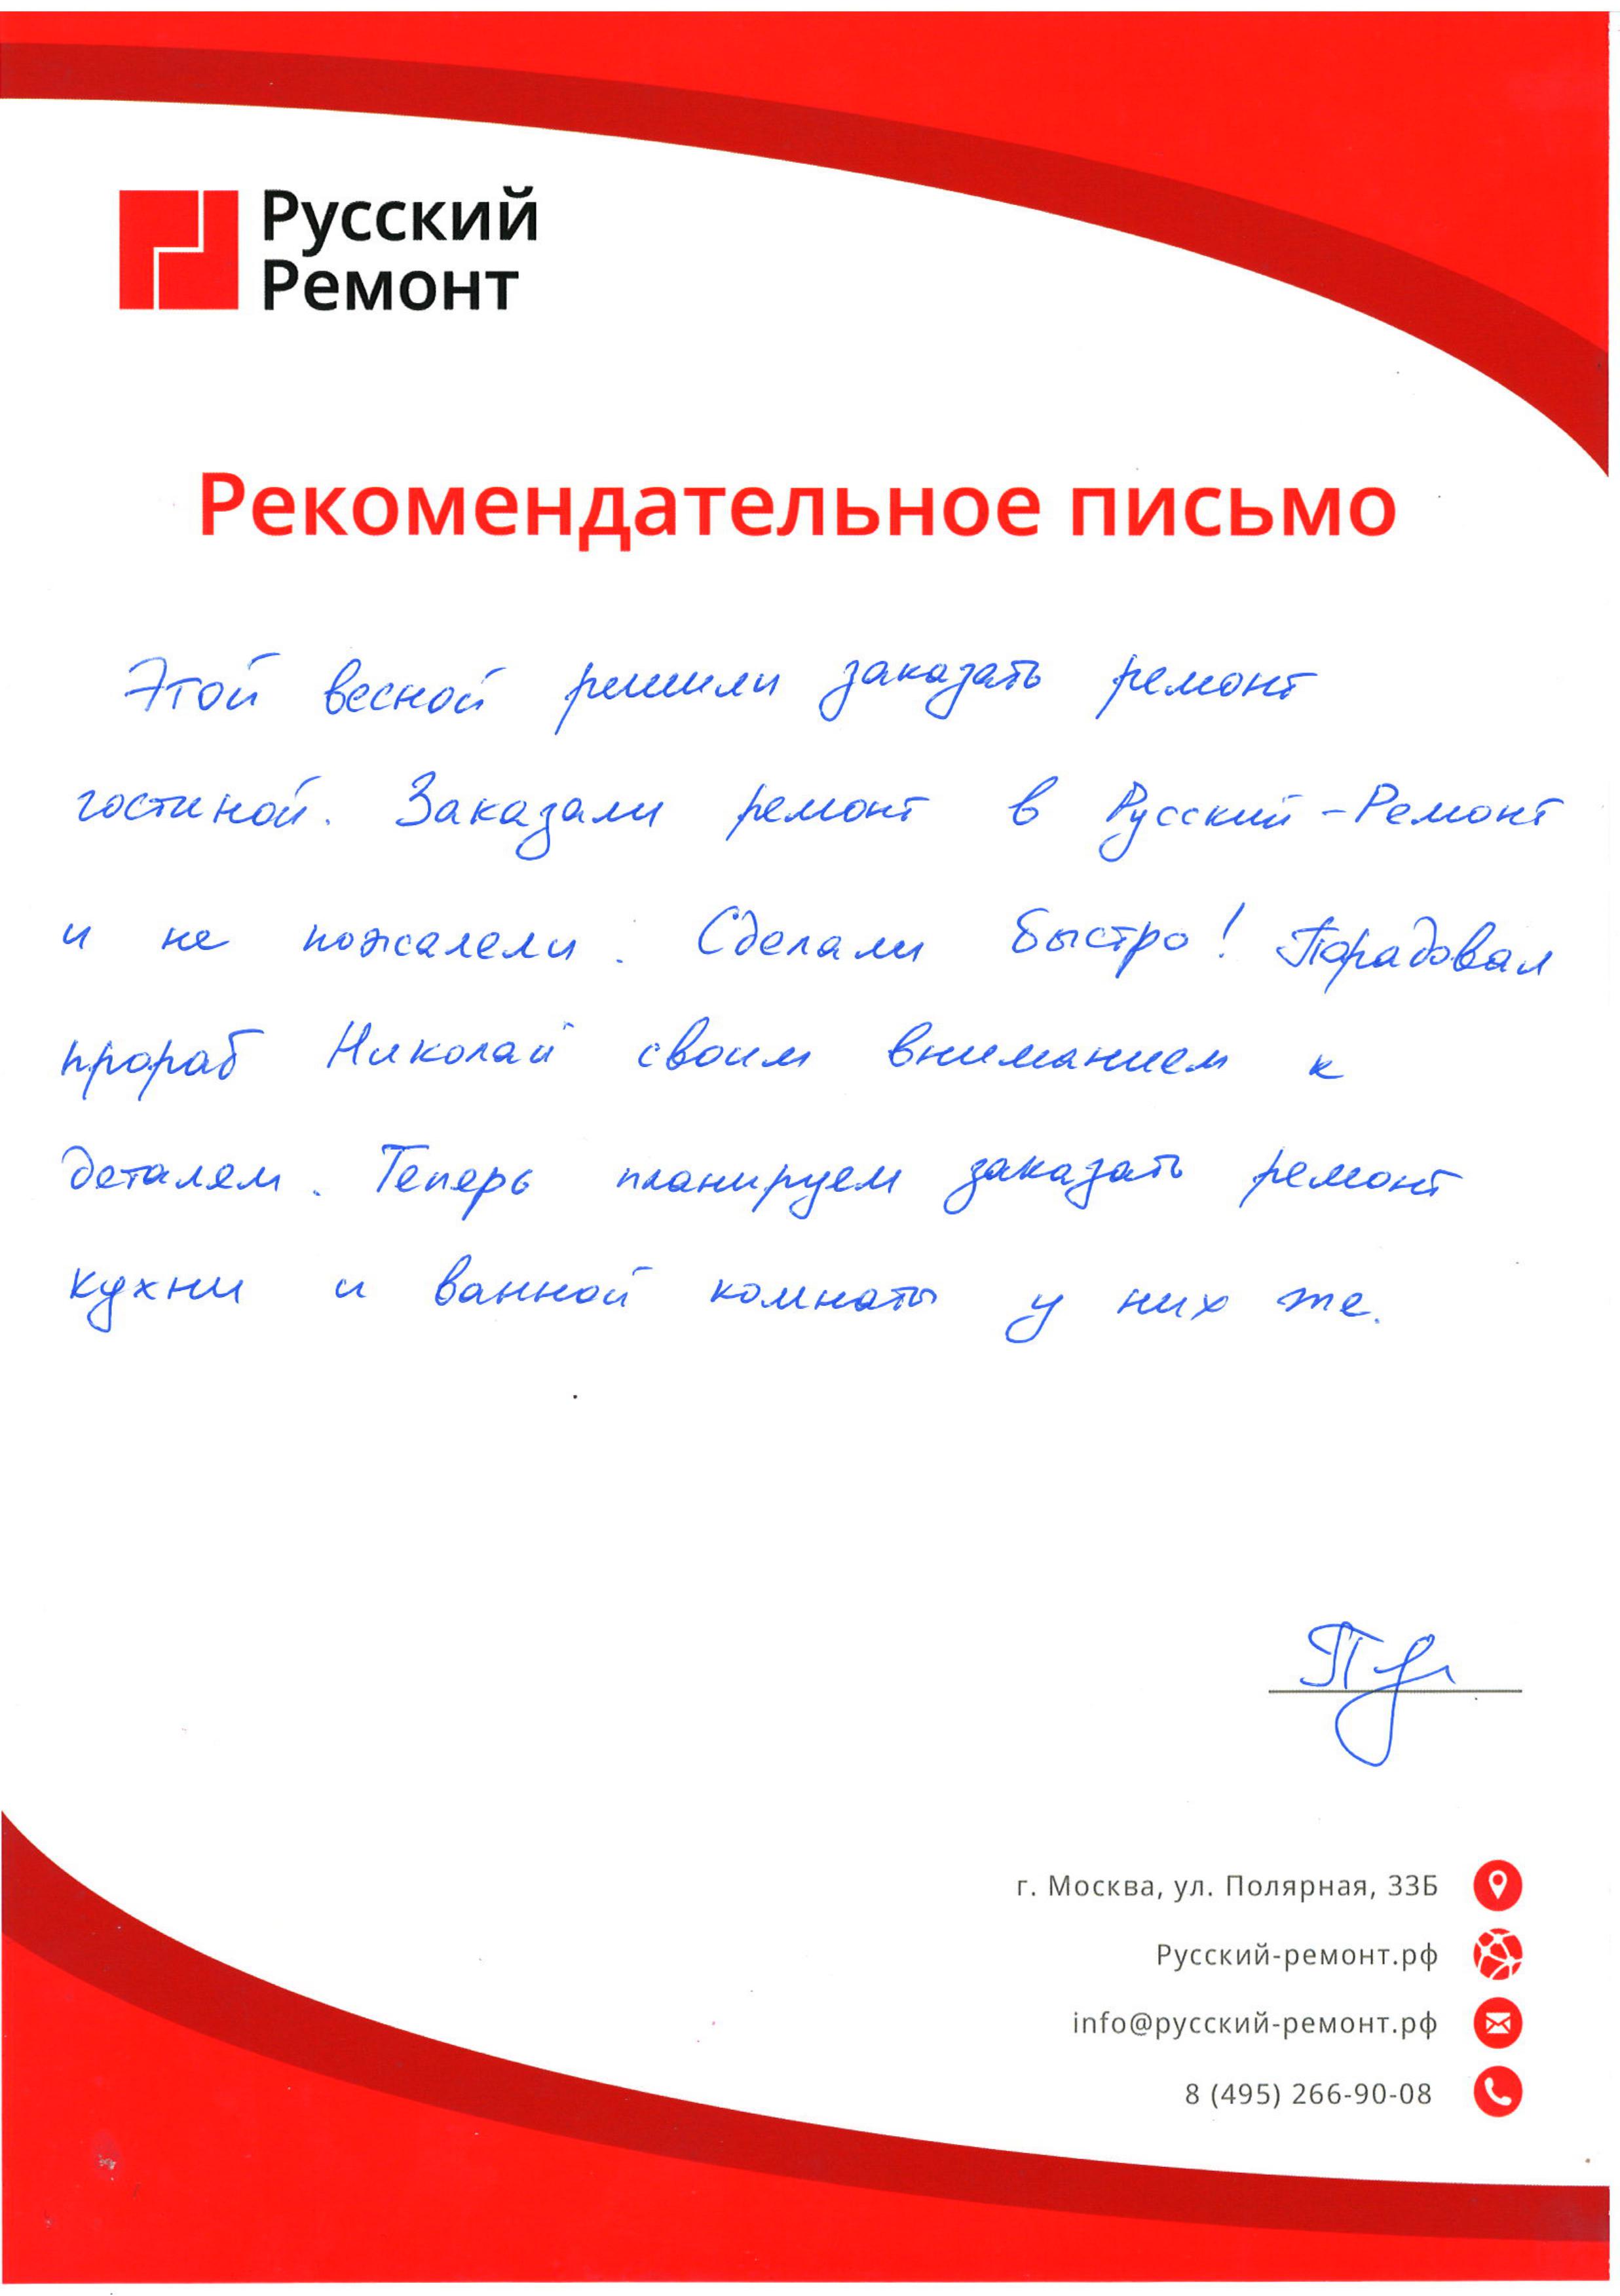 Русский
Ремонт
Рекомендательное письмо
Этой весной решили заказать ремонт
гостиной. Заказали ремонт в Русский-Ремонт
и не пожалели. Сделали быстро! Порадовал
прораб Николай своим вниманием к
деталям. Теперь планируем заказать ремонт
кухни и ванной комнаты у них же.
г. Москва, ул. Полярная, 33Б
Русский-ремонт.рф
info@русский-ремонт.рф
8 (495) 266-90-08